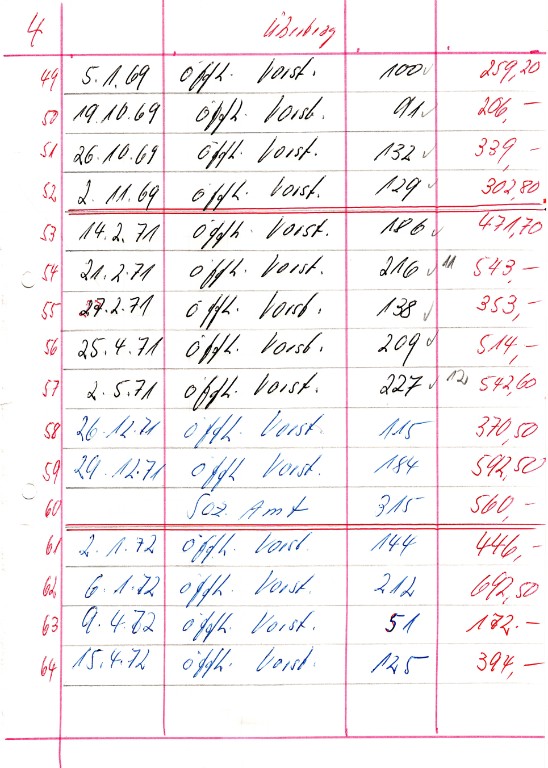 4 Übertrag
49 5.1.69 öfftl. Vorst. 100 ✓ 259,20
50 19.10.69 öfftl. Vorst. 91 ✓ 206,—
51 26.10.69 öfftl. Vorst. 132 ✓ 339,—
52 2.11.69 öfftl. Vorst. 129 ✓ 302,80
53 14.2.71 öfftl. Vorst. 186 ✓ 471,70
54 21.2.71 öfftl. Vorst. 216 ✓ 11 543,—
55 27.2.71 öfftl. Vorst. 138 ✓ 353,—
56 25.4.71 öfftl. Vorst. 209 ✓ 514,—
57 2.5.71 öfftl. Vorst. 227 ✓ 12 542,60
58 26.12.71 öfftl. Vorst. 115 370,50
59 29.12.71 öfftl. Vorst. 184 592,50
60 Soz. Amt 315 560,—
61 2.1.72 öfftl. Vorst. 144 446,—
62 6.1.72 öfftl. Vorst. 212 692,50
63 9.4.72 öfftl. Vorst. 51 172.—
64 15.4.72 öfftl. Vorst. 125 394,—